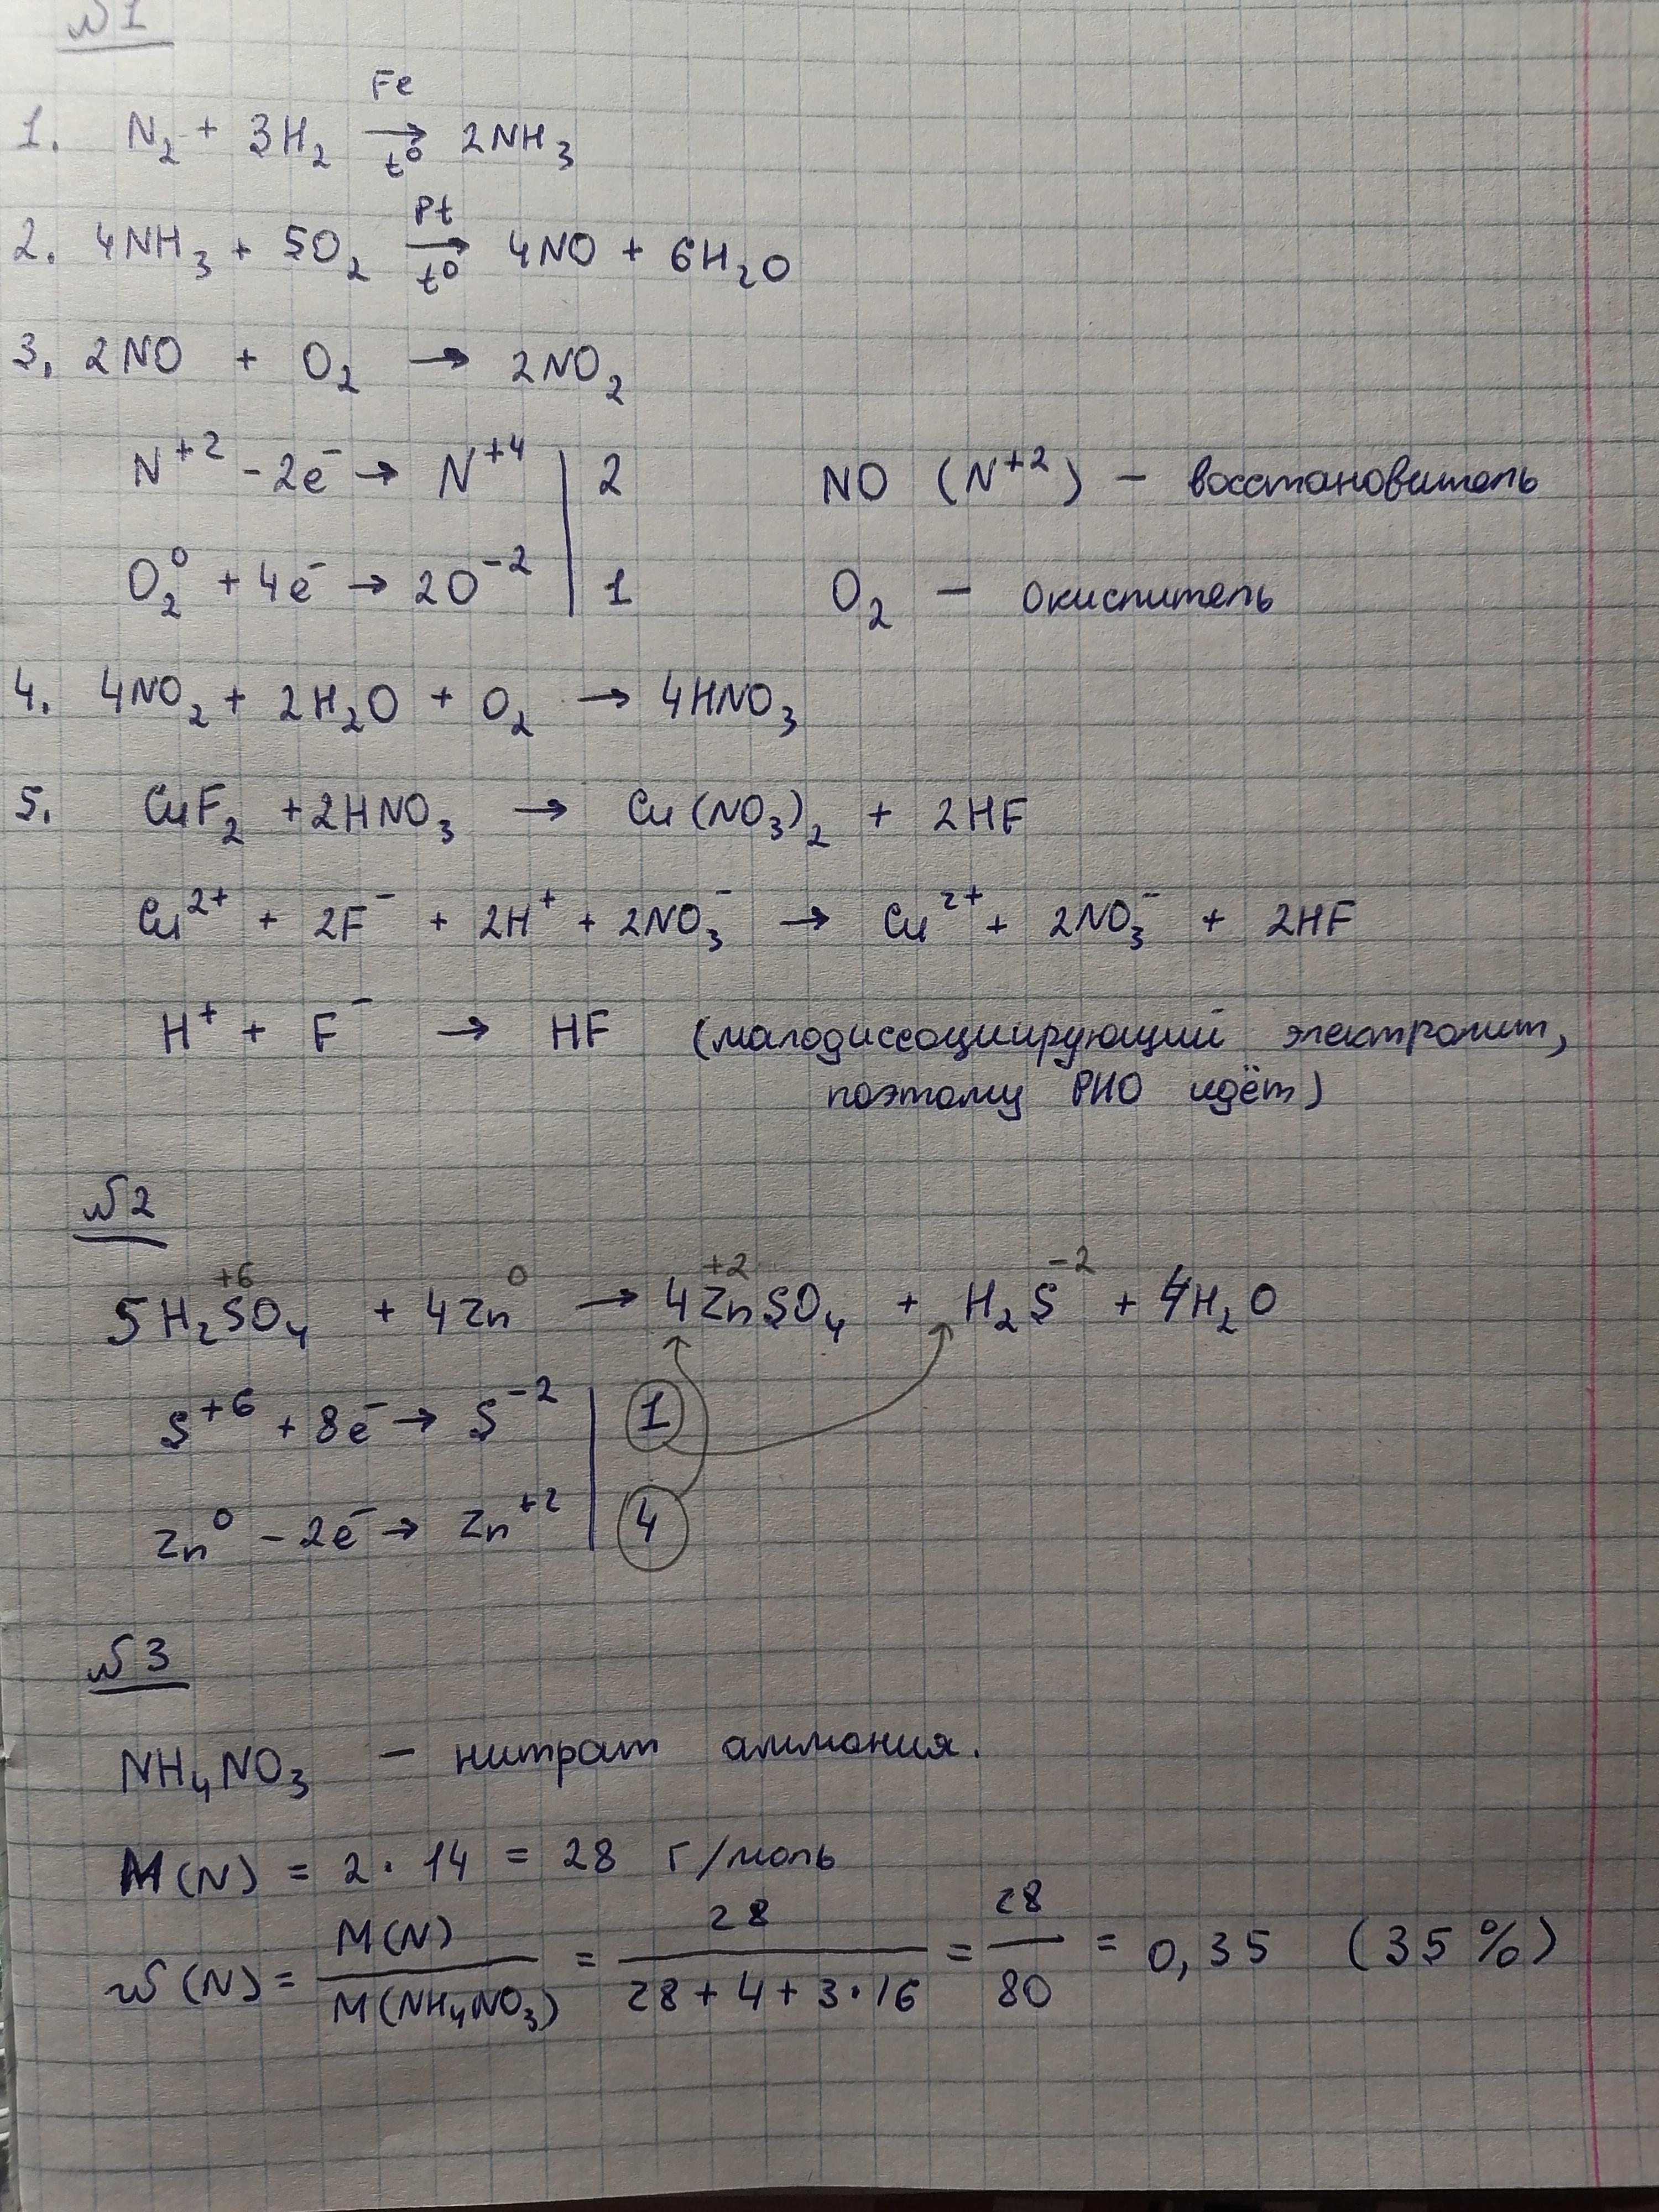 №1
Fe
1. N₂ + 3H₂ → 2NH₃
t⁰
Pt
2. 4NH₃ + 5O₂ → 4NO + 6H₂O
t⁰
3. 2NO + O₂ → 2NO₂
N⁺² - 2e⁻ → N⁺⁴ | 2 NO (N⁺²) – восстановитель
O₂⁰ + 4e⁻ → 2O⁻² | 1 O₂ – окислитель
4. 4NO₂ + 2H₂O + O₂ → 4HNO₃
5. CuF₂ + 2HNO₃ → Cu(NO₃)₂ + 2HF
Cu²⁺ + 2F⁻ + 2H⁺ + 2NO₃⁻ → Cu²⁺ + 2NO₃⁻ + 2HF
H⁺ + F⁻ → HF (малодиссоциирующий электролит,
поэтому РИО идёт)
№2
+6 0 +2 -2
5H₂SO₄ + 4Zn → 4ZnSO₄ + H₂S + 4H₂O
S⁺⁶ + 8e⁻ → S⁻² | 1
Zn⁰ - 2e⁻ → Zn⁺² | 4
№3
NH₄NO₃ – нитрат аммония.
M(N) = 2·14 = 28 г/моль
w(N) = M(N)/M(NH₄NO₃) = 28/(28+4+3·16) = 28/80 = 0,35 (35%)